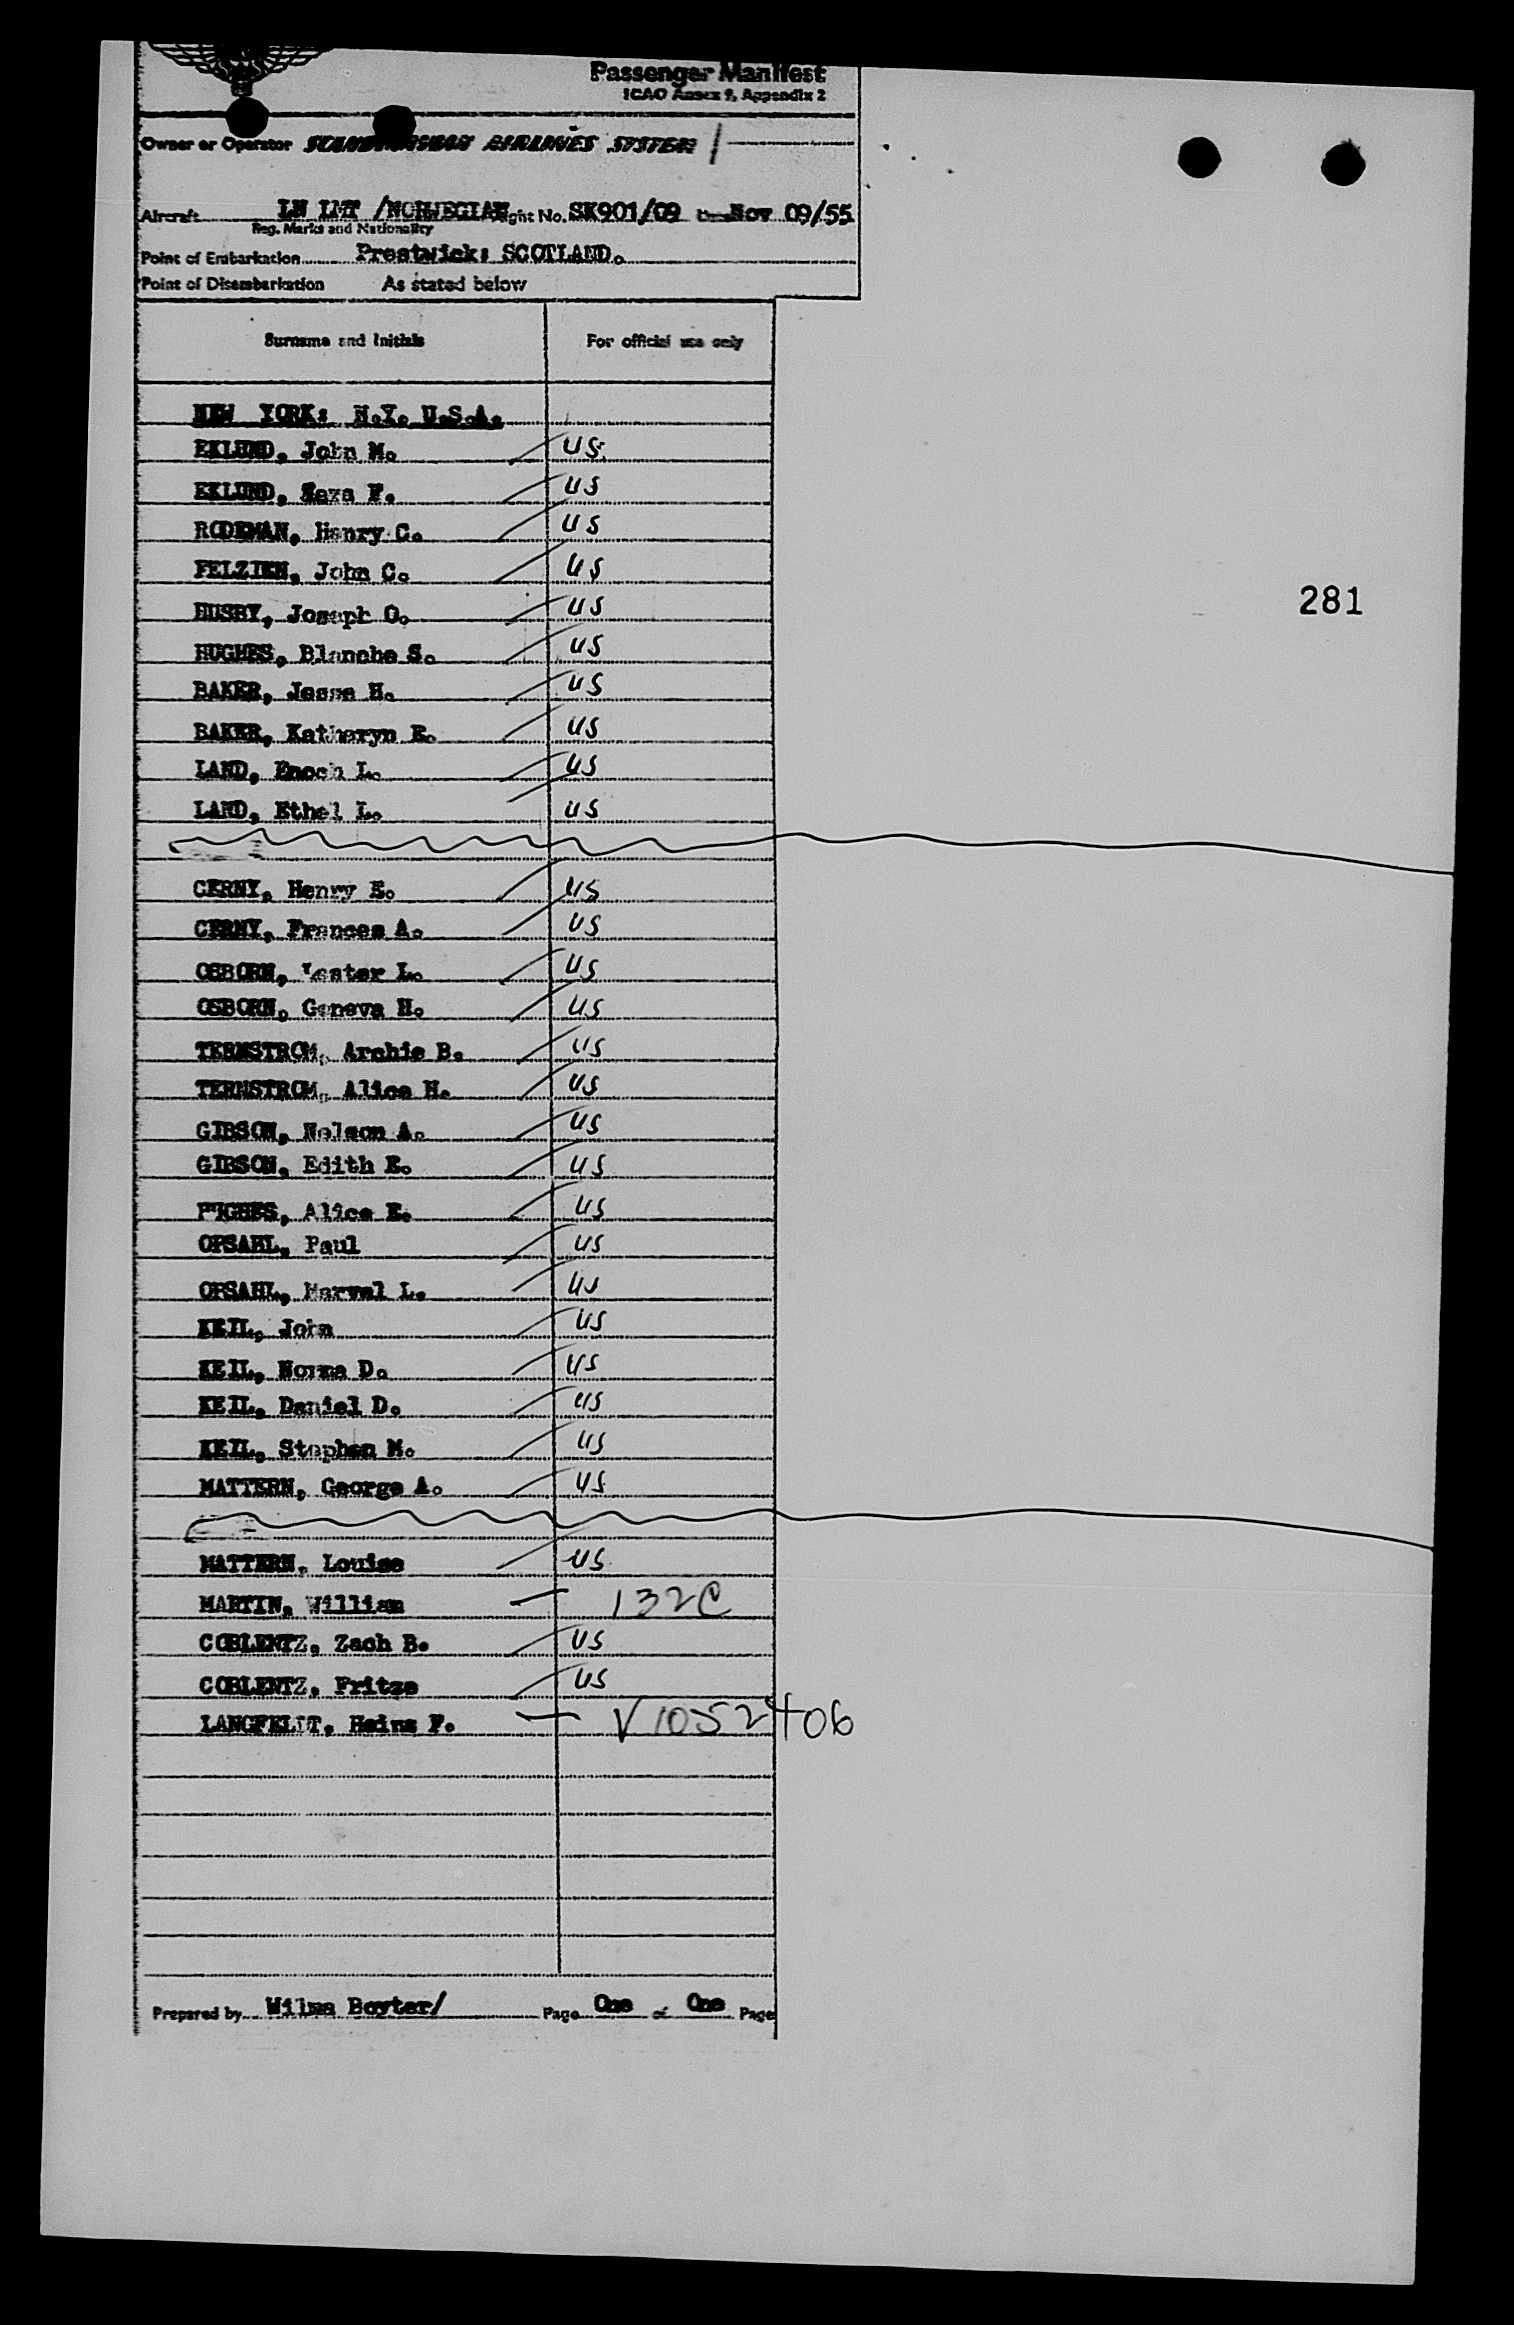 Passenger Manifest
ICAO Annex 9, Appendix 2
Owner or Operator SCANDINAVIAN AIRLINES SYSTEM /
Aircraft LN LMT /NORWEGIAN Flight No. SK901/09 Nov 09/55
Reg. Marks and Nationality
Point of Embarkation Prestwick: SCOTLAND.
Point of Disembarkation As stated below
Surname and Initials For official use only
NEW YORK: N.Y. U.S.A.
EKLUND, John M. US
EKLUND, F. US
RODEMAN, Henry C. US
FELZIEN, John C. US
281
HUSBY, Joseph O. US
HUGHES, Blanche S. US
BAKER, Jesse H. US
BAKER, Katheryn E. US
LAND, Enoch L. US
LAND, Ethel L. US
CERNY, Henry E. US
CERNY, Frances A. US
OSBORN, Lester L. US
OSBORN, Geneva H. US
TERNSTROM, Archie B. US
TERNSTROM, Alice H. US
GIBSON, Nelson A. US
GIBSON, Edith E. US
HUGHES, Alice E. US
OPSAHL, Paul US
OPSAHL, Marvel L. US
KEIL, John US
KEIL, Norma D. US
KEIL, Daniel D. US
KEIL, Stephen M. US
MATTERN, George A. US
MATTERN, Louise US
MARTIN, William — 132C
COBLENTZ, Zach B. US
COBLENTZ, Fritze US
LANGFELDT, Heinz F. — V1052406
Prepared by Wilma Boyter/ Page One of One Page